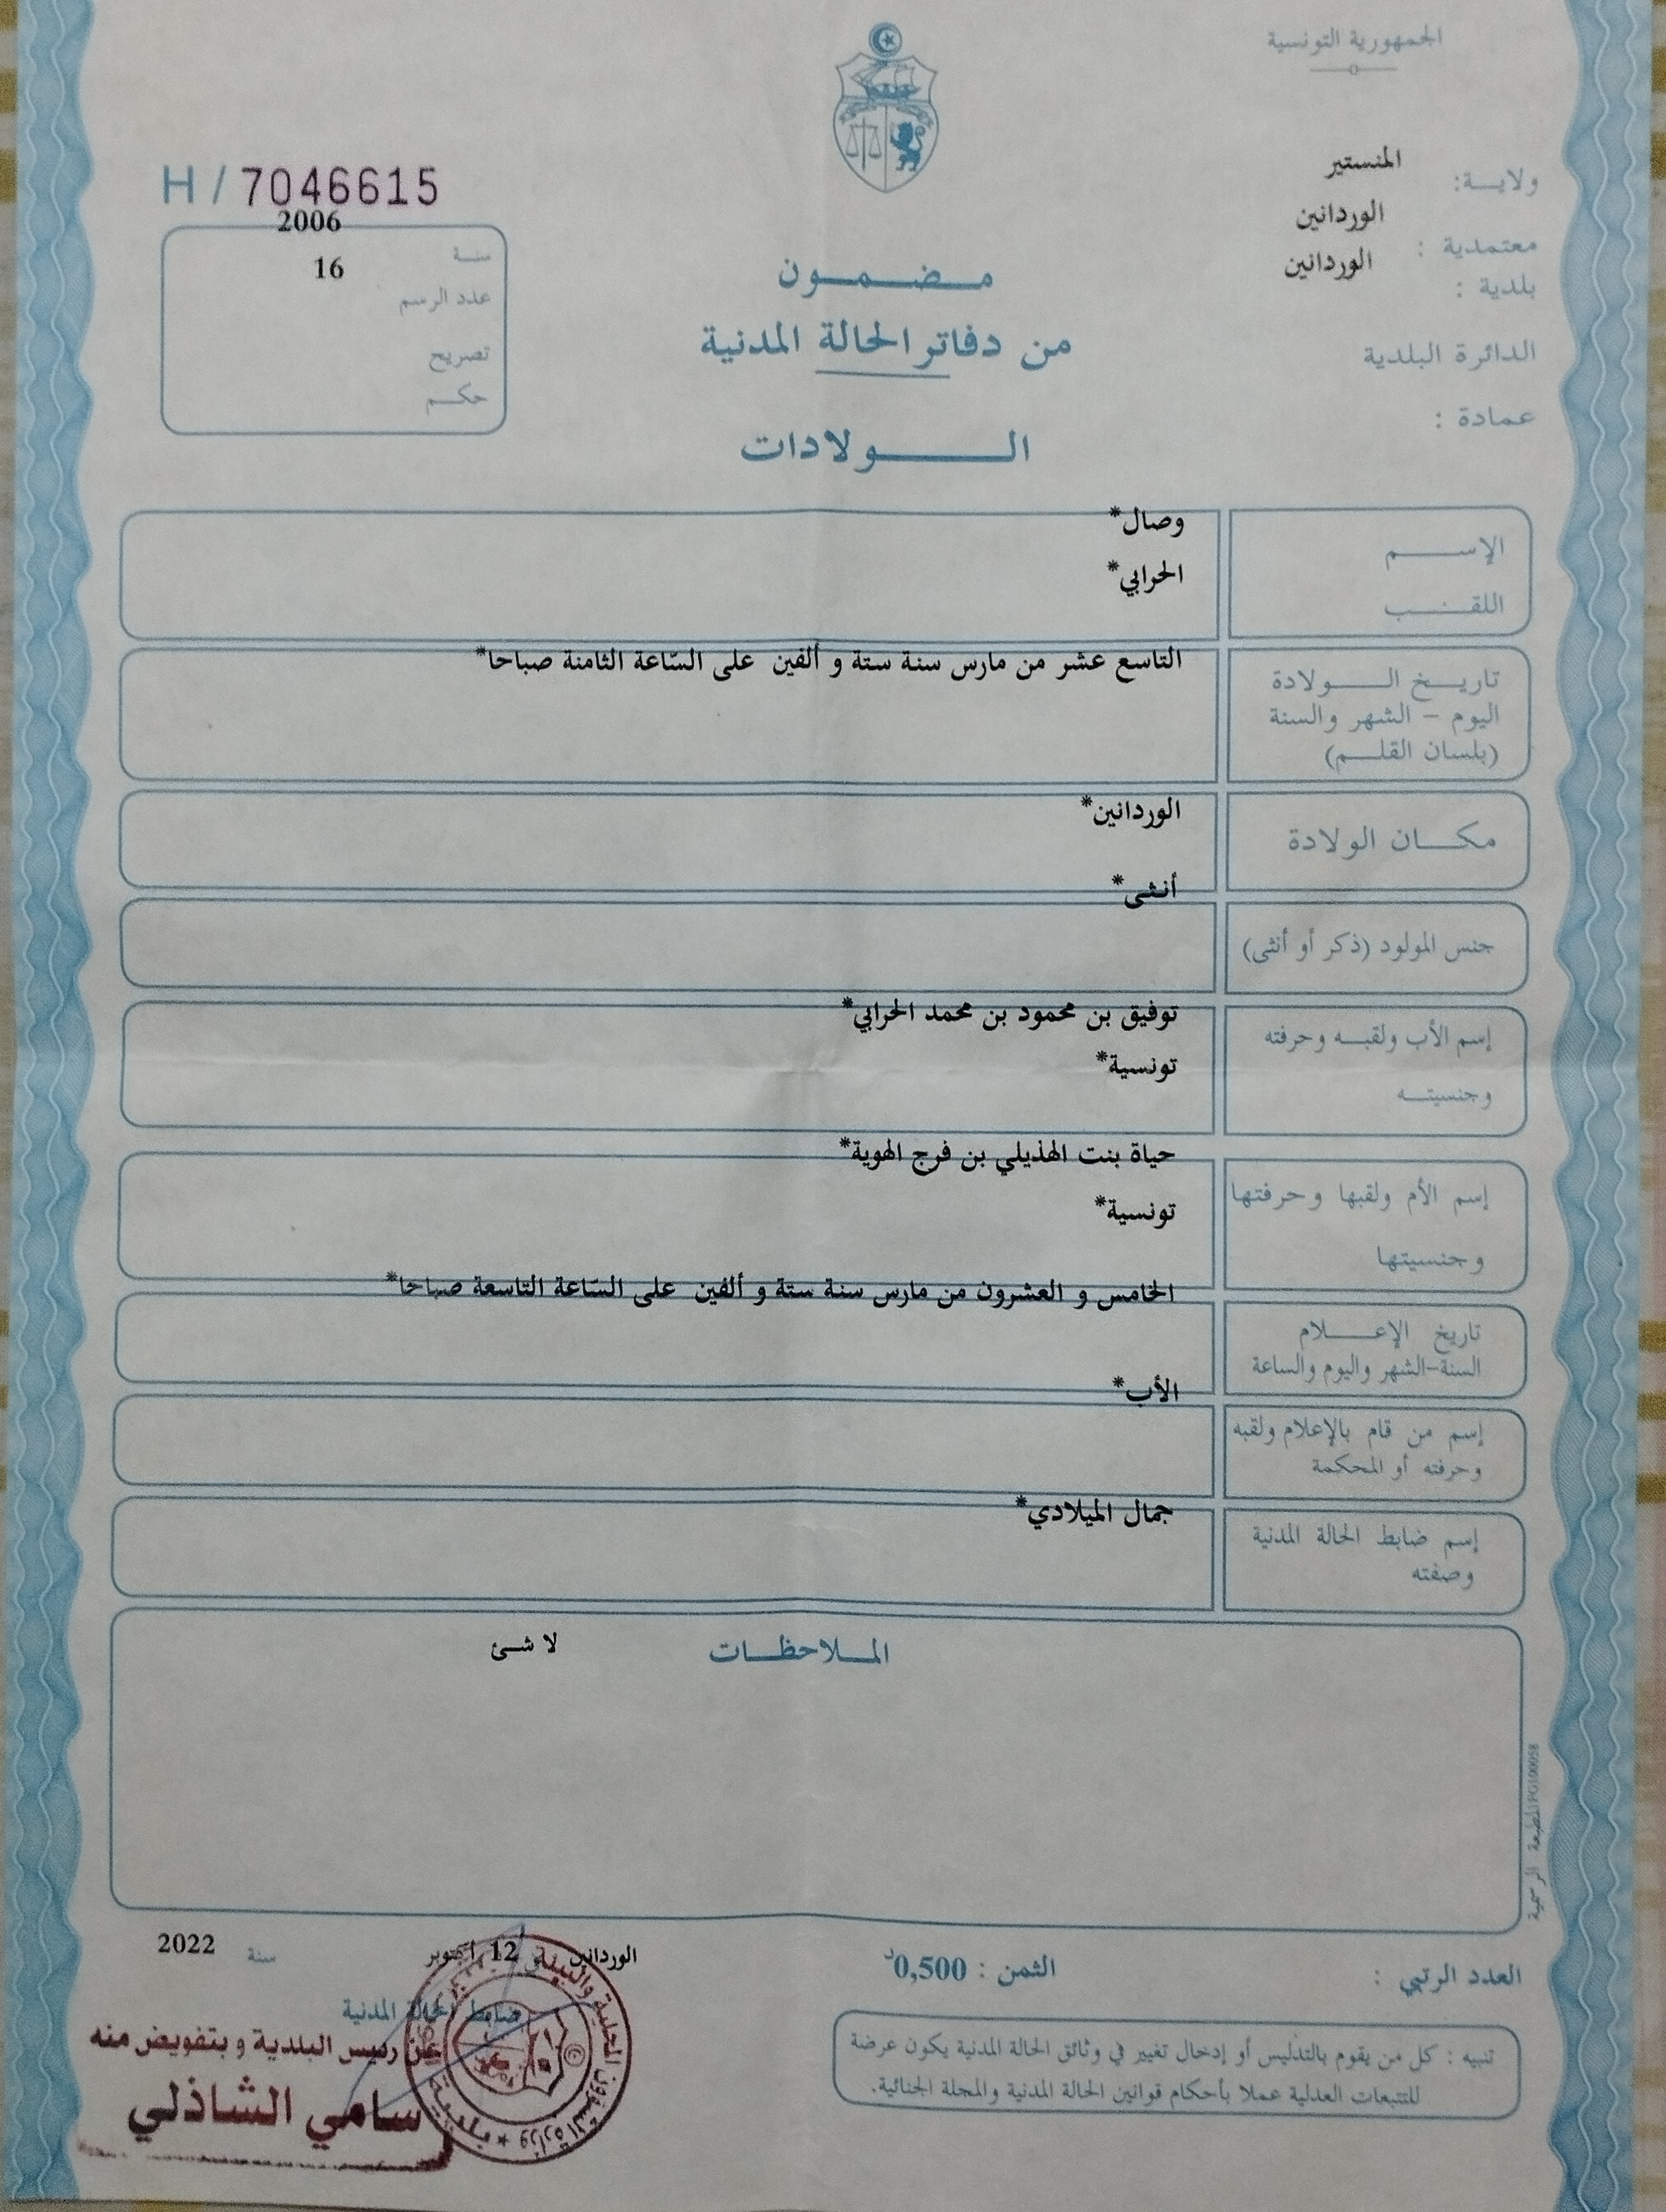 الجمهورية التونسية
ولايــة: المنستير
معتمدية : الوردانين
بلدية : الوردانين
الدائرة البلدية
عمادة :
H / 7046615
سنــة 2006
عدد الرسم 16
تصريح
حكــم
مـضـمـون
من دفاتر الحالة المدنية
الـولادات
الإســـم وصال*
اللقـــب الحرابي*
تاريــخ الــولادة التاسع عشر من مارس سنة ستة و ألفين على السّاعة الثامنة صباحا*
اليوم – الشهر والسنة
(بلسان القلــم)
مكــان الولادة الوردانين*
جنس المولود (ذكر أو أنثى) أنثى*
إسم الأب ولقبــه وحرفته توفيق بن محمود بن محمد الحرابي*
وجنسيتــه تونسية*
إسم الأم ولقبها وحرفتها حياة بنت الهذيلي بن فرج الهوية*
وجنسيتها تونسية*
تاريخ الإعـــلام الخامس و العشرون من مارس سنة ستة و ألفين على السّاعة التاسعة صباحا*
السنة-الشهر واليوم والساعة
إسم من قام بالإعلام ولقبه الأب*
وحرفته أو المحكمة
إسم ضابط الحالة المدنية جمال الميلادي*
وصفته
الملاحظات لا شئ
المطبعة الرسمية PG100058
العدد الرتبي :
الثمن : 0,500د
الوردانين 12 أكتوبر سنة 2022
ضابط الحالة المدنية
عن رئيس البلدية و بتفويض منه
سامي الشاذلي
تنبيه : كل من يقوم بالتدليس أو إدخال تغيير في وثائق الحالة المدنية يكون عرضة
للتتبعات العدلية عملا بأحكام قوانين الحالة المدنية والمجلة الجنائية.